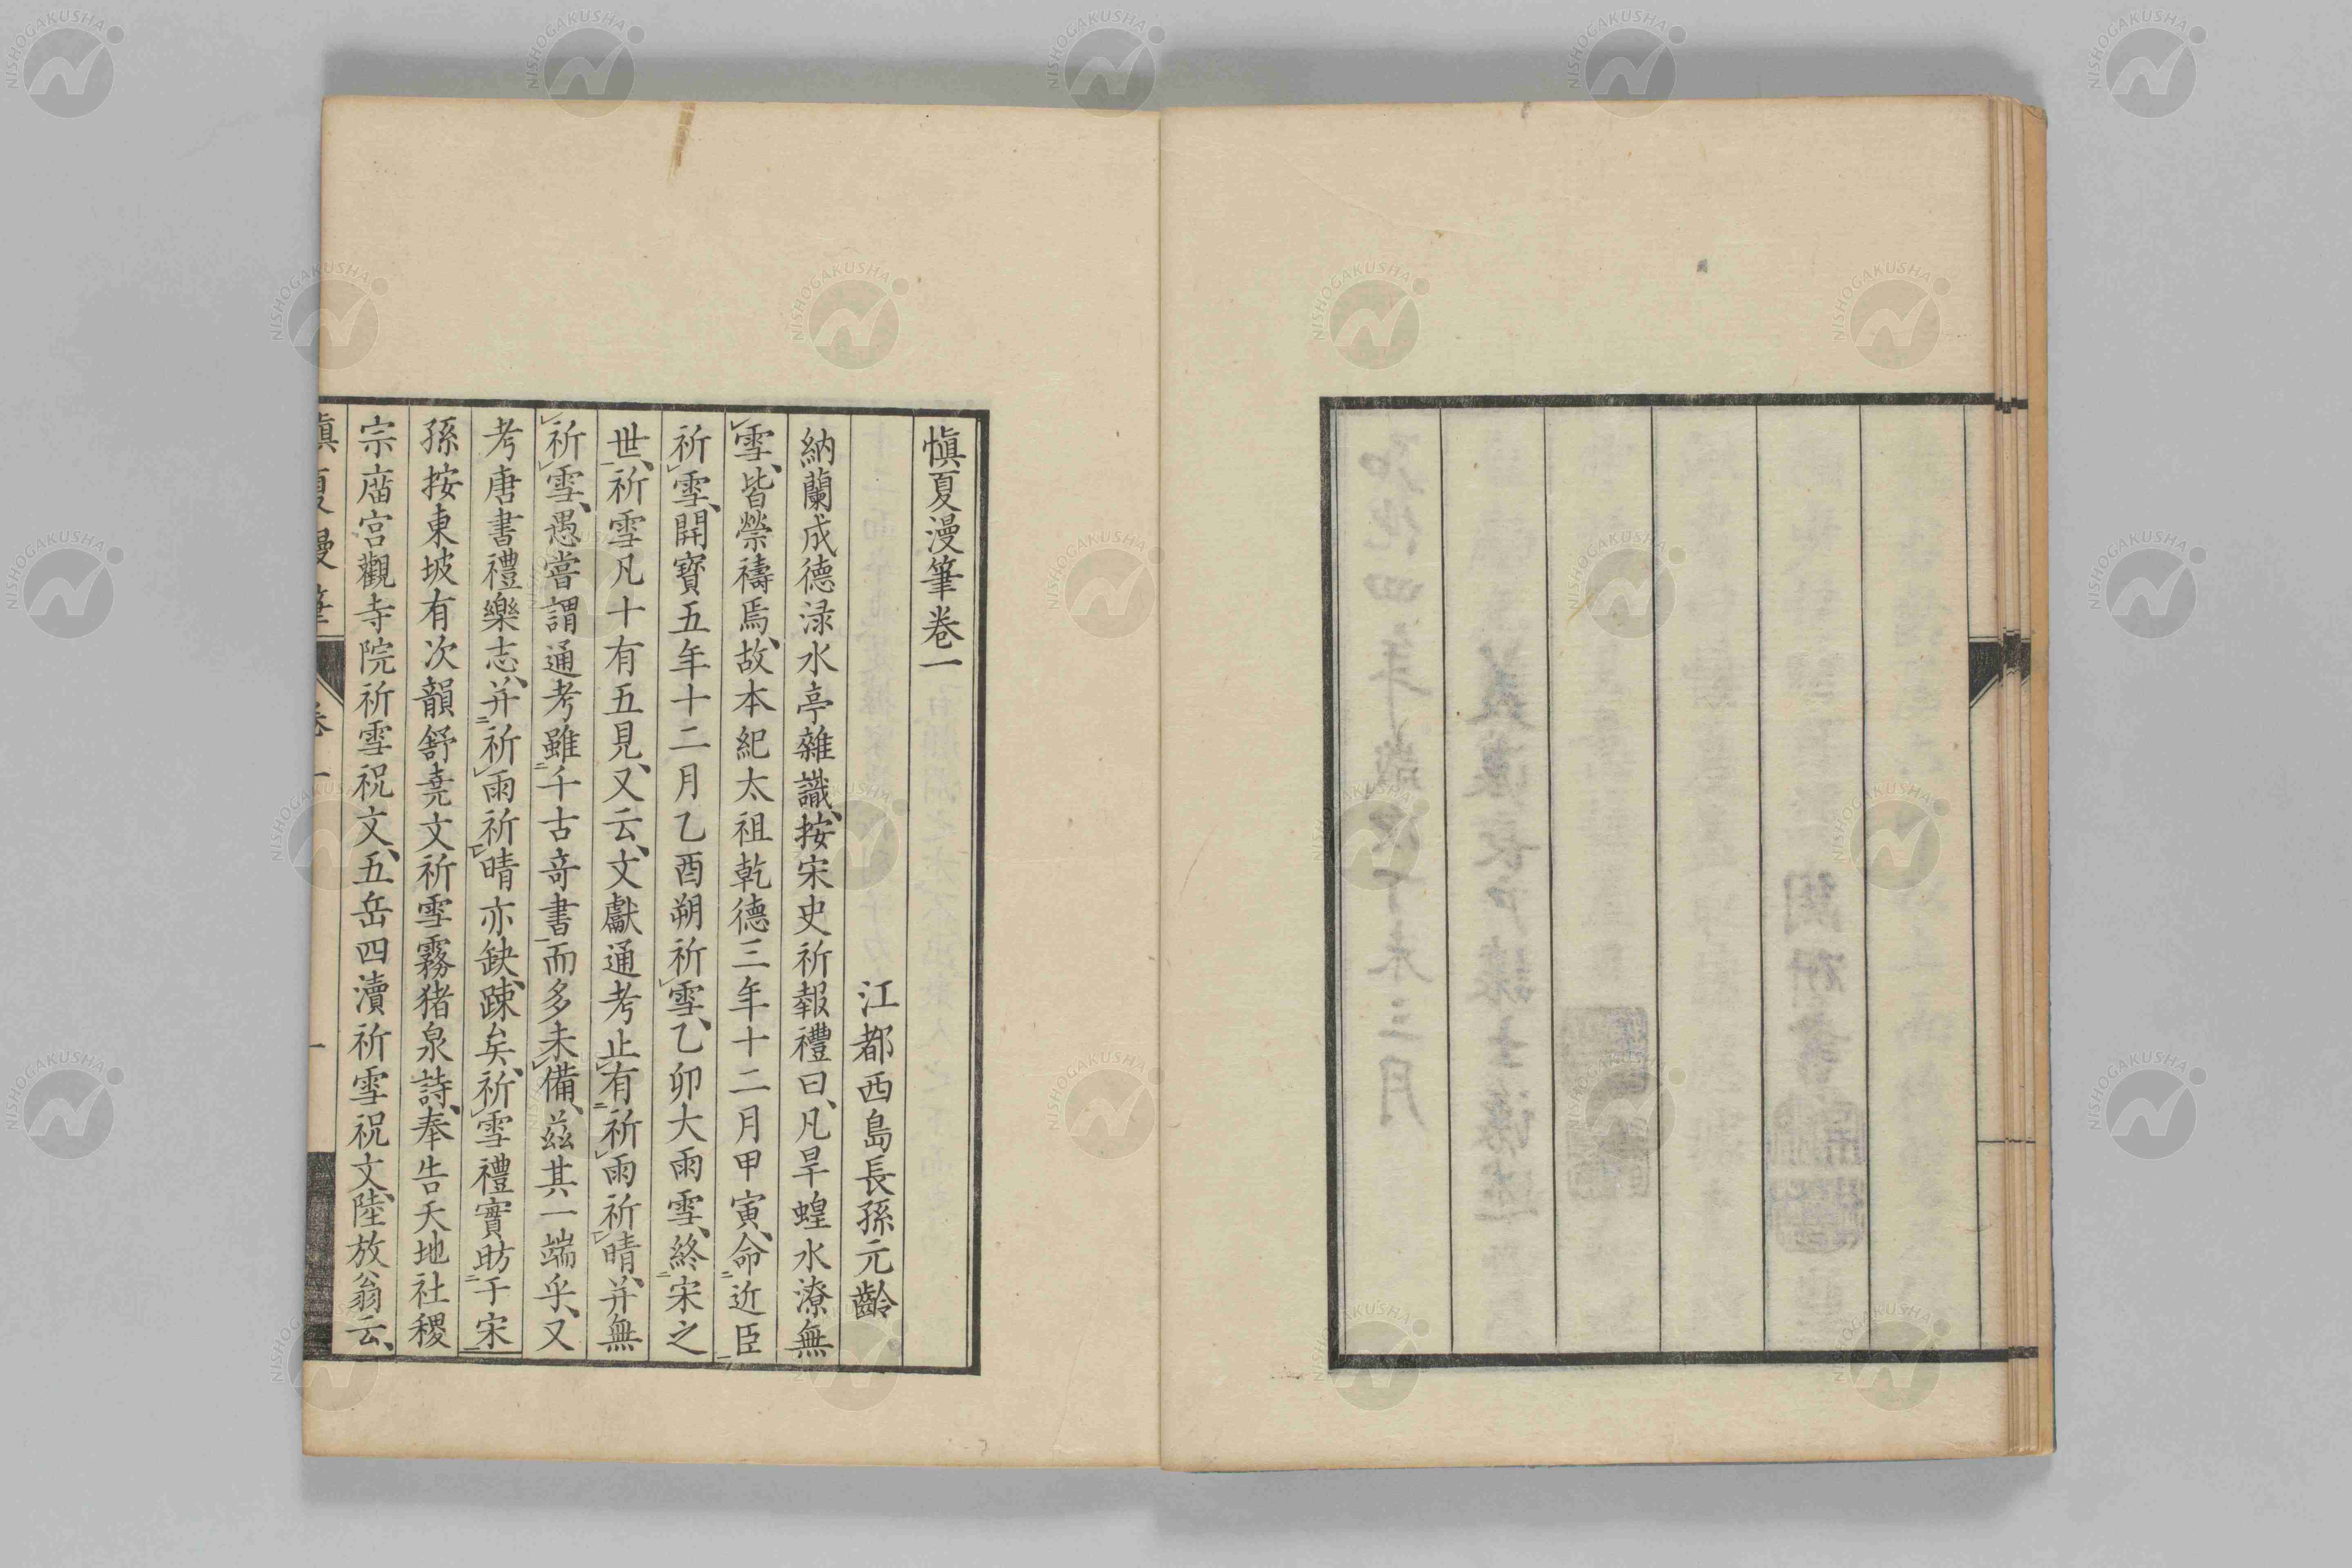 愼夏漫筆卷一
江都西島長孫元齡
納蘭成德淥水亭雜識、按宋史祈報禮曰、凡旱蝗水潦無
雪、皆禜禱焉、故本紀太祖乾德三年十二月甲寅、命近臣
祈雪、開寶五年十二月乙酉朔祈雪、乙卯大雨雪、終宋之
世、祈雪凡十有五見、又云、文獻通考止有祈雨祈晴、并無
祈雪、愚嘗謂通考雖千古奇書、而多未備、茲其一端乎、又
考唐書禮樂志、并祈雨祈晴亦缺、疎矣、祈雪禮實昉于宋
孫按東坡有次韻舒堯文祈雪霧猪泉詩、奉告天地社稷
宗廟宮觀寺院祈雪祝文、五岳四瀆祈雪祝文、陸放翁云、
愼夏漫筆 卷一 一
NISHOGAKUSHA